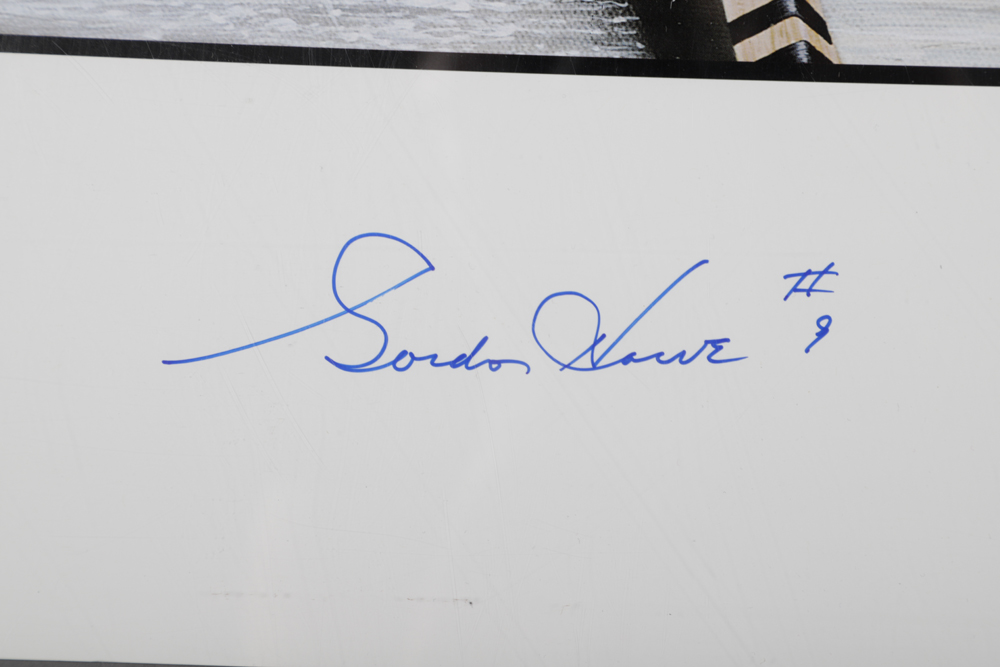 Gordon Howe #
9